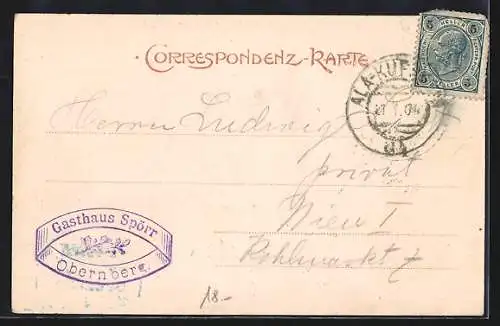 CORRESPONDENZ-KARTE
5 HELLER 5
5 5
ALA-KUF
04
84
Herrn Ludwig
privat
Wien I
Kohlmarkt 7
Gasthaus Spörr
Obernberg
18.-